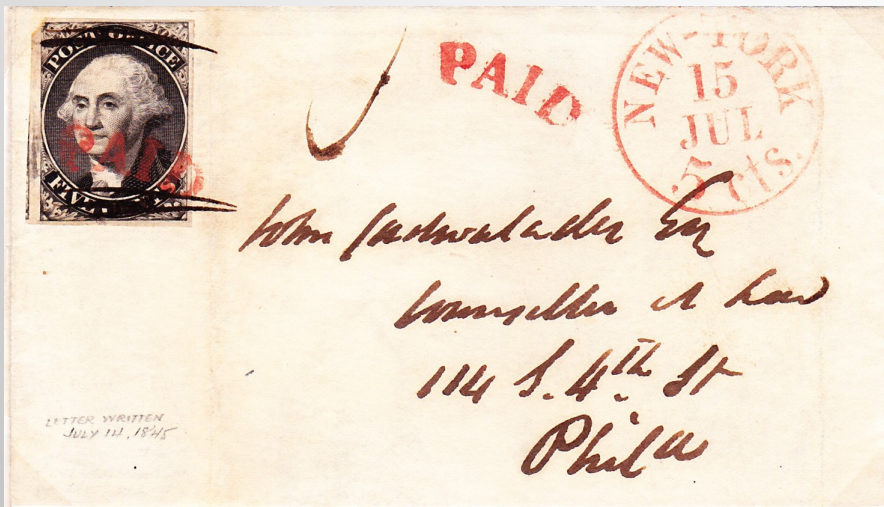 POST OFFICE
FIVE CENTS
PAID
PAID
NEW-YORK
15
JUL
5 cts.
John Cadwalader Esq
Counsellor at Law
114 S. 4th St
Phila
LETTER WRITTEN
JULY 14, 1845